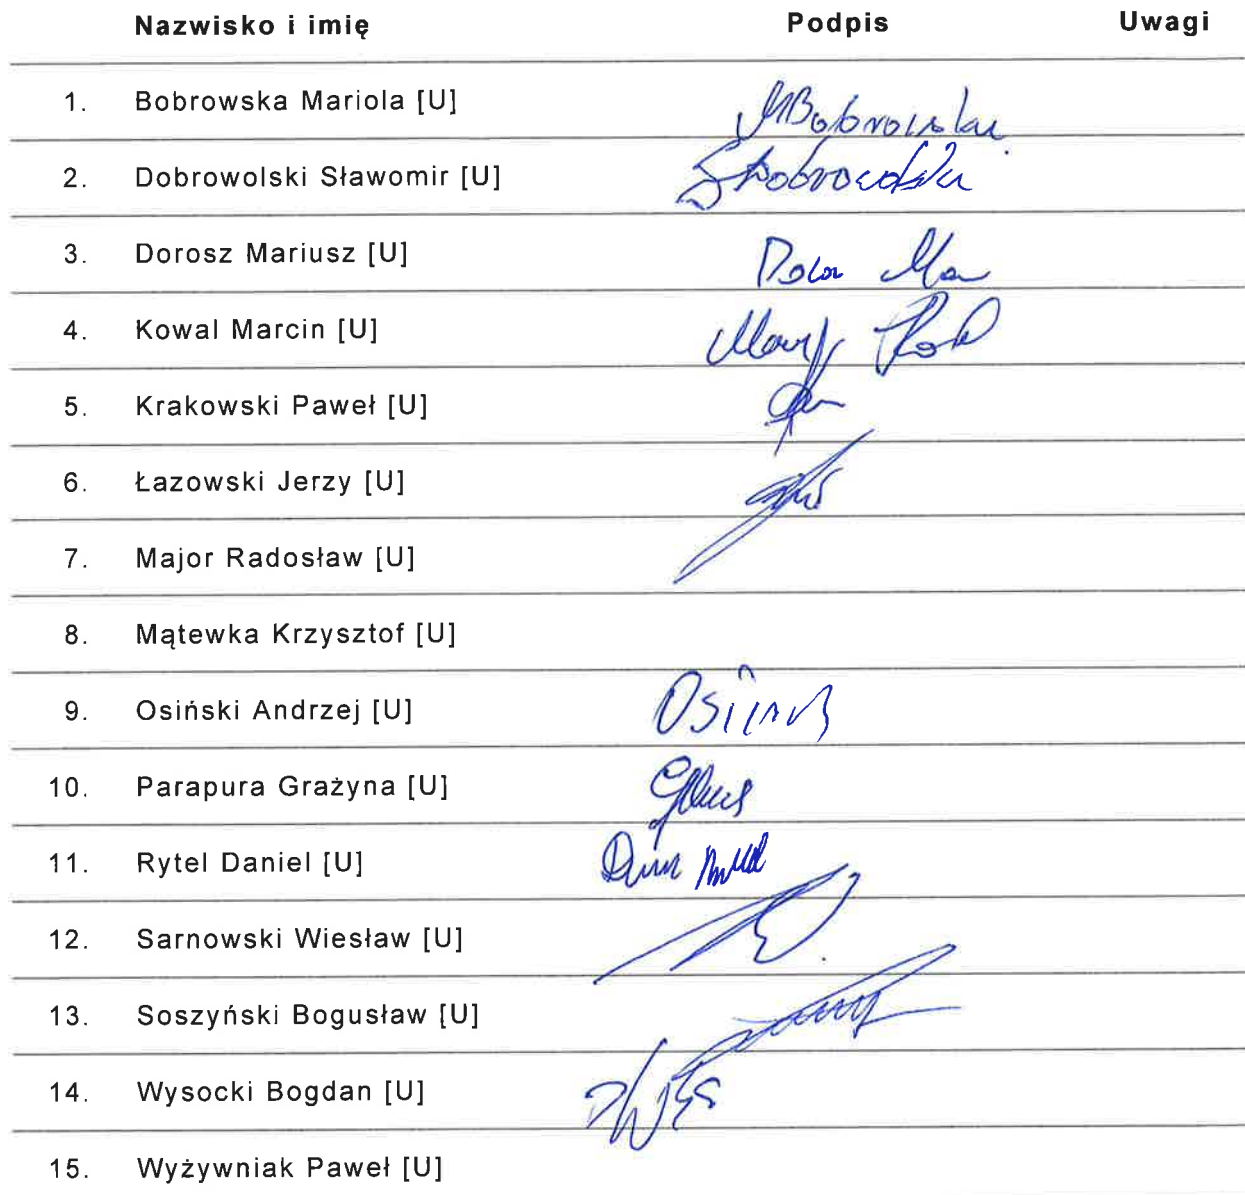 Nazwisko i imię Podpis Uwagi
1. Bobrowska Mariola [U] MBobrowska
2. Dobrowolski Sławomir [U] SDobrowolski
3. Dorosz Mariusz [U]
4. Kowal Marcin [U]
5. Krakowski Paweł [U]
6. Łazowski Jerzy [U]
7. Major Radosław [U]
8. Mątewka Krzysztof [U]
9. Osiński Andrzej [U]
10. Parapura Grażyna [U]
11. Rytel Daniel [U]
12. Sarnowski Wiesław [U]
13. Soszyński Bogusław [U]
14. Wysocki Bogdan [U]
15. Wyżywniak Paweł [U]